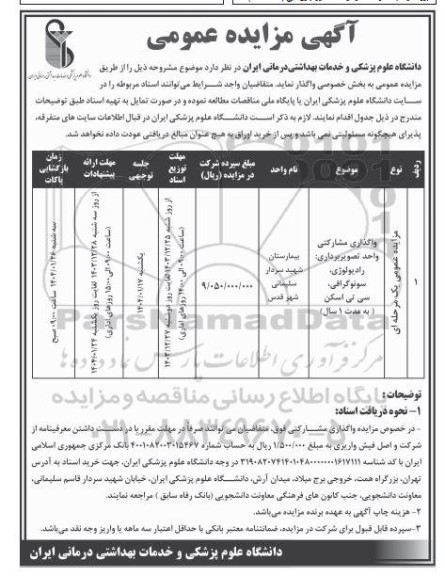 آگهی مزایده عمومی
دانشگاه علوم پزشکی و خدمات بهداشتی درمانی ایران در نظر دارد موضوع مشروحه ذیل را از طریق
مزایده عمومی به بخش خصوصی واگذار نماید. متقاضیان واجد شرایط می‌توانند اسناد مربوطه را در
سایت دانشگاه علوم پزشکی ایران یا پایگاه ملی مناقصات مطالعه نموده و در صورت تمایل به تهیه اسناد طبق توضیحات
مندرج در ذیل جدول اقدام نمایند. لازم به ذکر است دانشگاه علوم پزشکی ایران در قبال اطلاعات سایت های متفرقه،
پذیرای هیچگونه مسئولیتی نمی باشد و پس از خرید اوراق به هیچ عنوان مبالغ دریافتی عودت داده نخواهد شد.
ردیف
نوع
موضوع
نام واحد
مبلغ سپرده شرکت
در مزایده (ریال)
مهلت
توزیع
اسناد
جلسه
توجیهی
مهلت ارائه
پیشنهادات
زمان
بازگشایی
پاکات
مزایده عمومی یک مرحله ای
واگذاری مشارکتی
واحد تصویربرداری:
رادیولوژی،
سونوگرافی،
سی تی اسکن
(به مدت ۱ سال)
بیمارستان
شهید سردار
سلیمانی
شهر قدس
۹/۰۵۰/۰۰۰/۰۰۰
از روز شنبه ۱۴۰۳/۱۲/۲۵ لغایت روز دوشنبه ۱۴۰۳/۱۲/۲۷
یکشنبه ۱۴۰۴/۰۱/۱۷
از روز سه شنبه ۱۴۰۳/۱۲/۲۸ لغایت روز یکشنبه ۱۴۰۴/۰۱/۲۴
سه شنبه ۱۴۰۴/۰۱/۲۶ ساعت ۰۹:۰۰ صبح
ParsNamadData
مرکز فرآوری اطلاعات پارس نماد داده ها
پایگاه اطلاع رسانی مناقصه و مزایده
توضیحات:
۱- نحوه دریافت اسناد:
- در خصوص مزایده واگذاری مشارکتی فوق، متقاضیان می توانند صرفا در مهلت مقرر با در دست داشتن معرفینامه از
شرکت و اصل فیش واریزی به مبلغ ۱/۵۰۰/۰۰۰ ریال به حساب شماره ۴۰۰۱۰۸۲۰۰۳۰۱۵۴۶۷ بانک مرکزی جمهوری اسلامی
ایران با کد شناسه در وجه دانشگاه علوم پزشکی ایران، جهت خرید اسناد به آدرس
تهران، بزرگراه همت، خروجی برج میلاد، میدان آرش، دانشگاه علوم پزشکی ایران، خیابان شهید سردار قاسم سلیمانی،
معاونت دانشجویی، جنب کانون های فرهنگی معاونت دانشجویی (بانک رفاه سابق) مراجعه نمایند.
۲- هزینه چاپ آگهی به عهده برنده مزایده می‌باشد.
۳-سپرده قابل قبول برای شرکت در مزایده، ضمانتنامه معتبر بانکی با حداقل اعتبار سه ماهه یا واریز وجه نقد می‌باشد.
دانشگاه علوم پزشکی و خدمات بهداشتی درمانی ایران